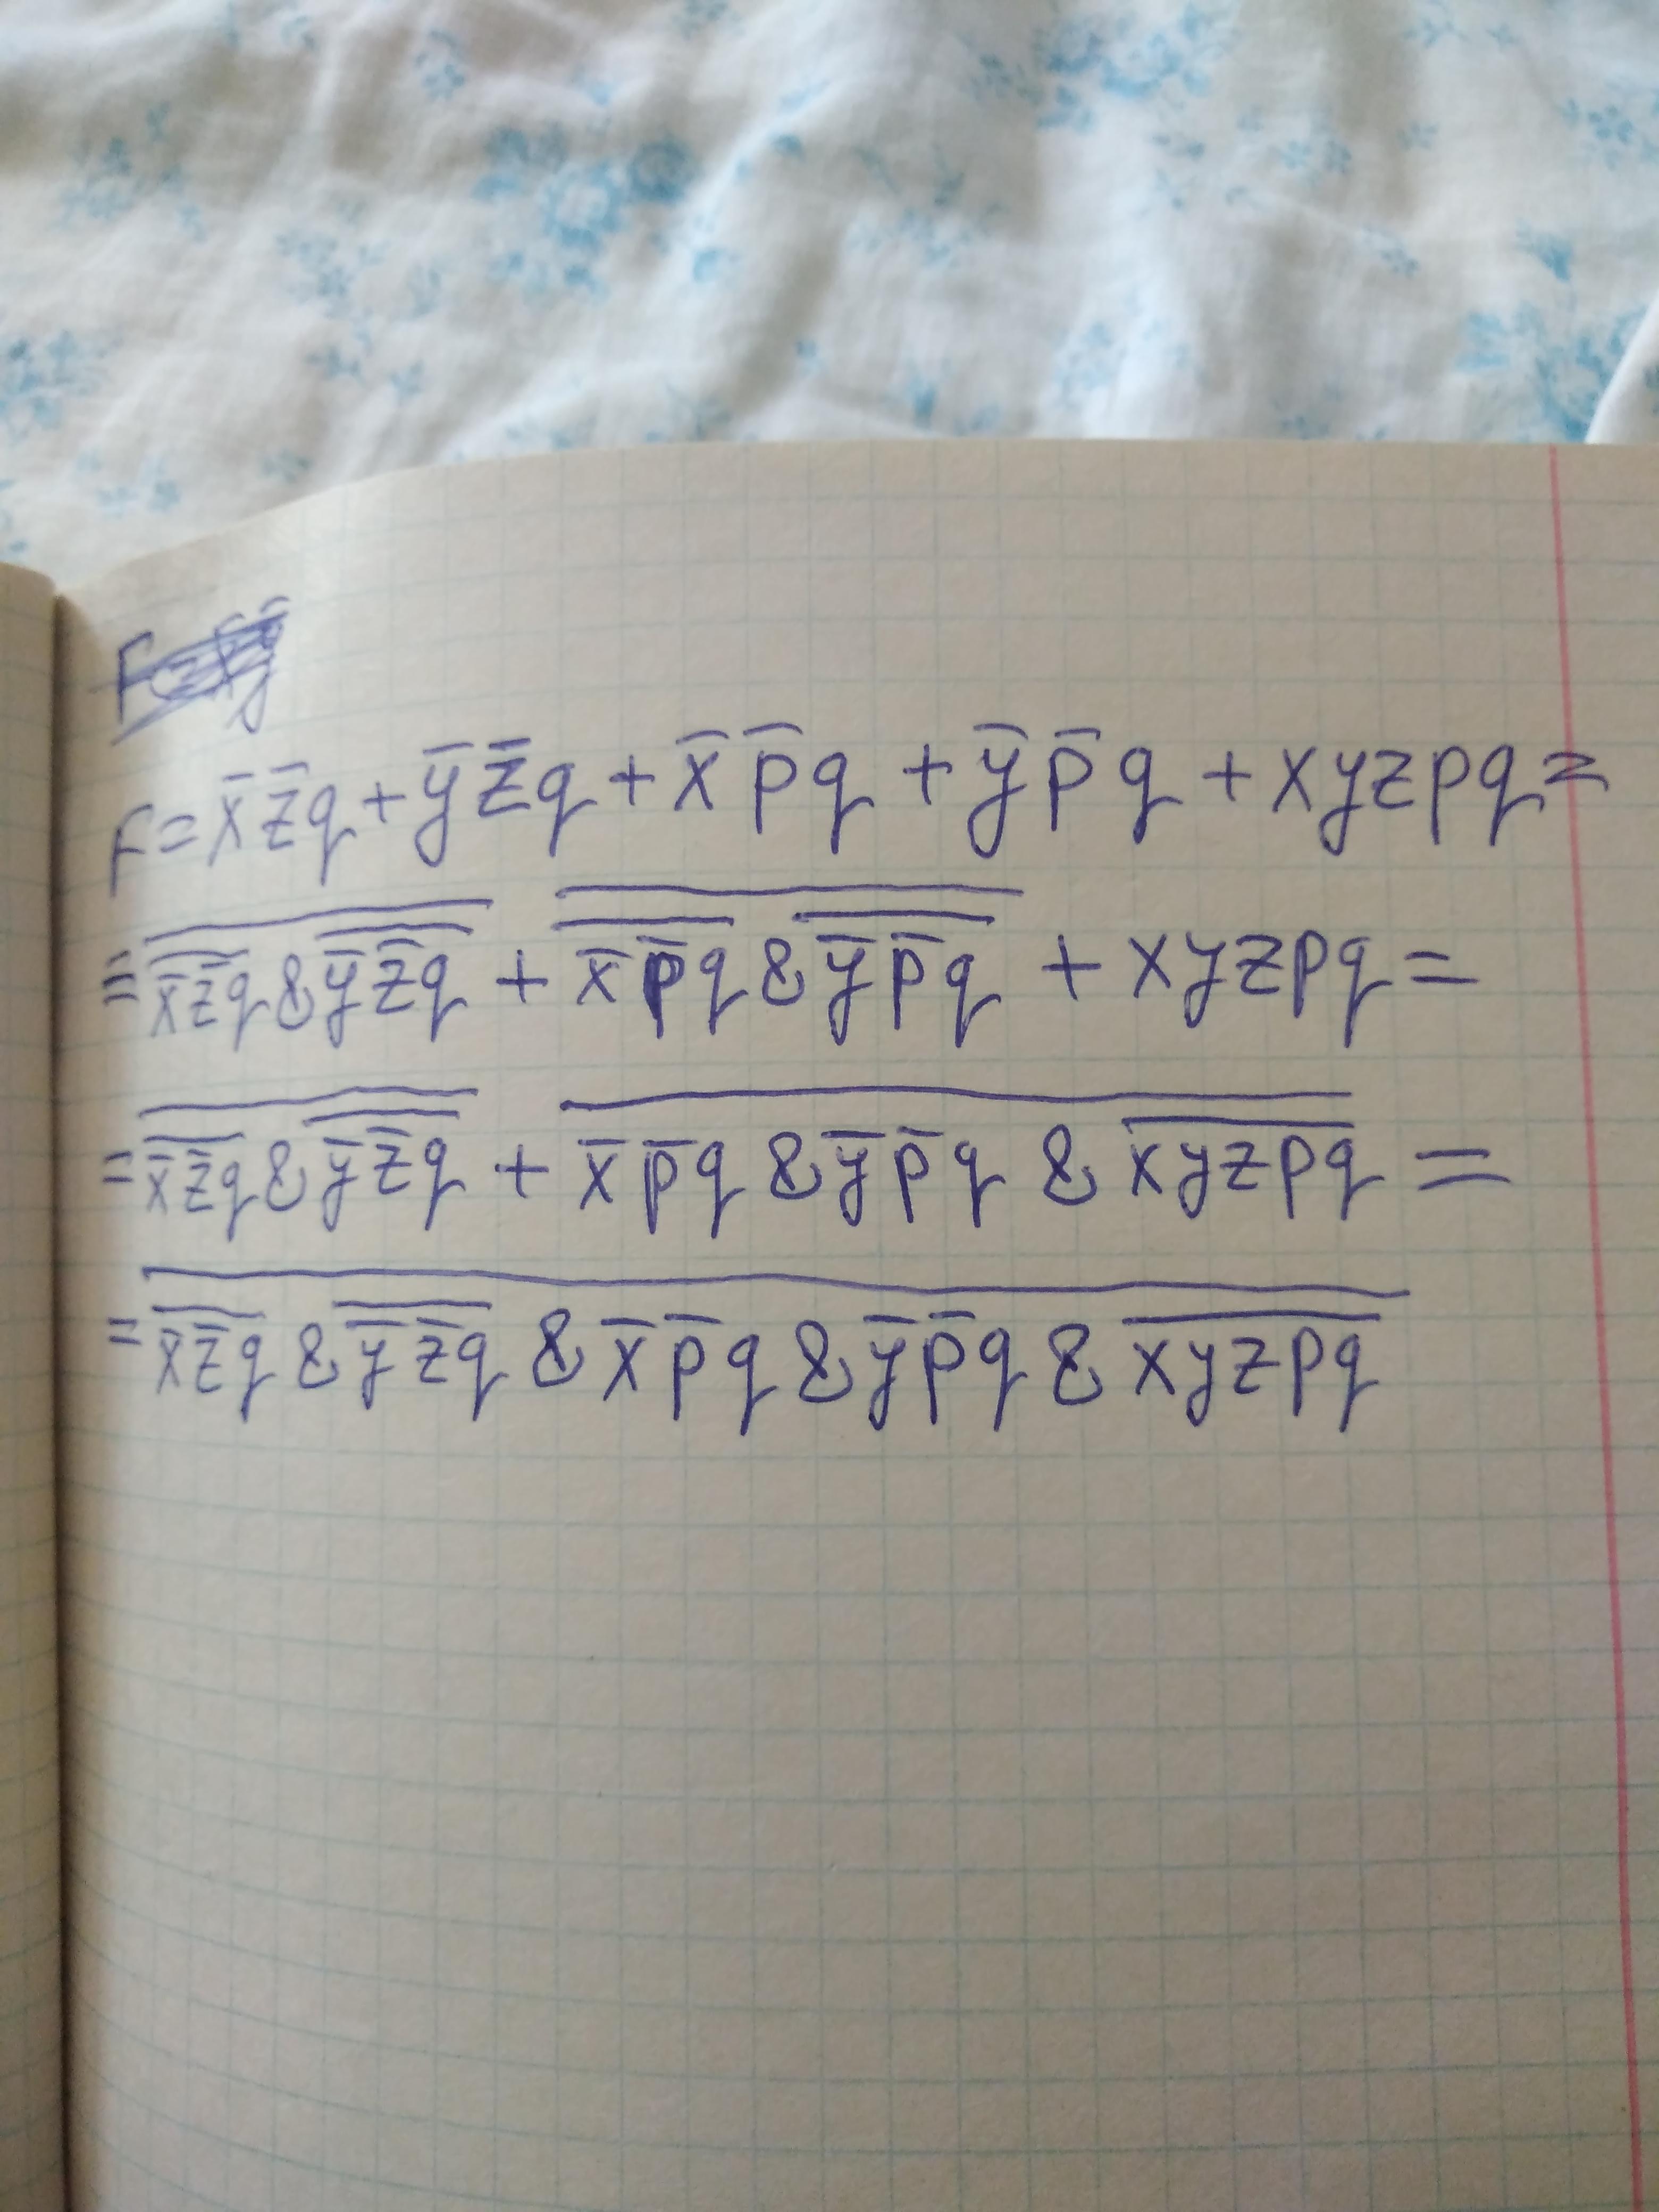 F = x̄ z̄ q + ȳ z̄ q + x̄ p̄ q + ȳ p̄ q + xyzpq =
= \overline{\overline{x̄ z̄ q} & \overline{ȳ z̄ q}} + \overline{\overline{x̄ p̄ q} & \overline{ȳ p̄ q}} + xyzpq =
= \overline{\overline{x̄ z̄ q} & \overline{ȳ z̄ q}} + \overline{x̄ p̄ q & ȳ p̄ q & \overline{xyzpq}} =
= \overline{\overline{x̄ z̄ q} & \overline{ȳ z̄ q} & x̄ p̄ q & ȳ p̄ q & \overline{xyzpq}}